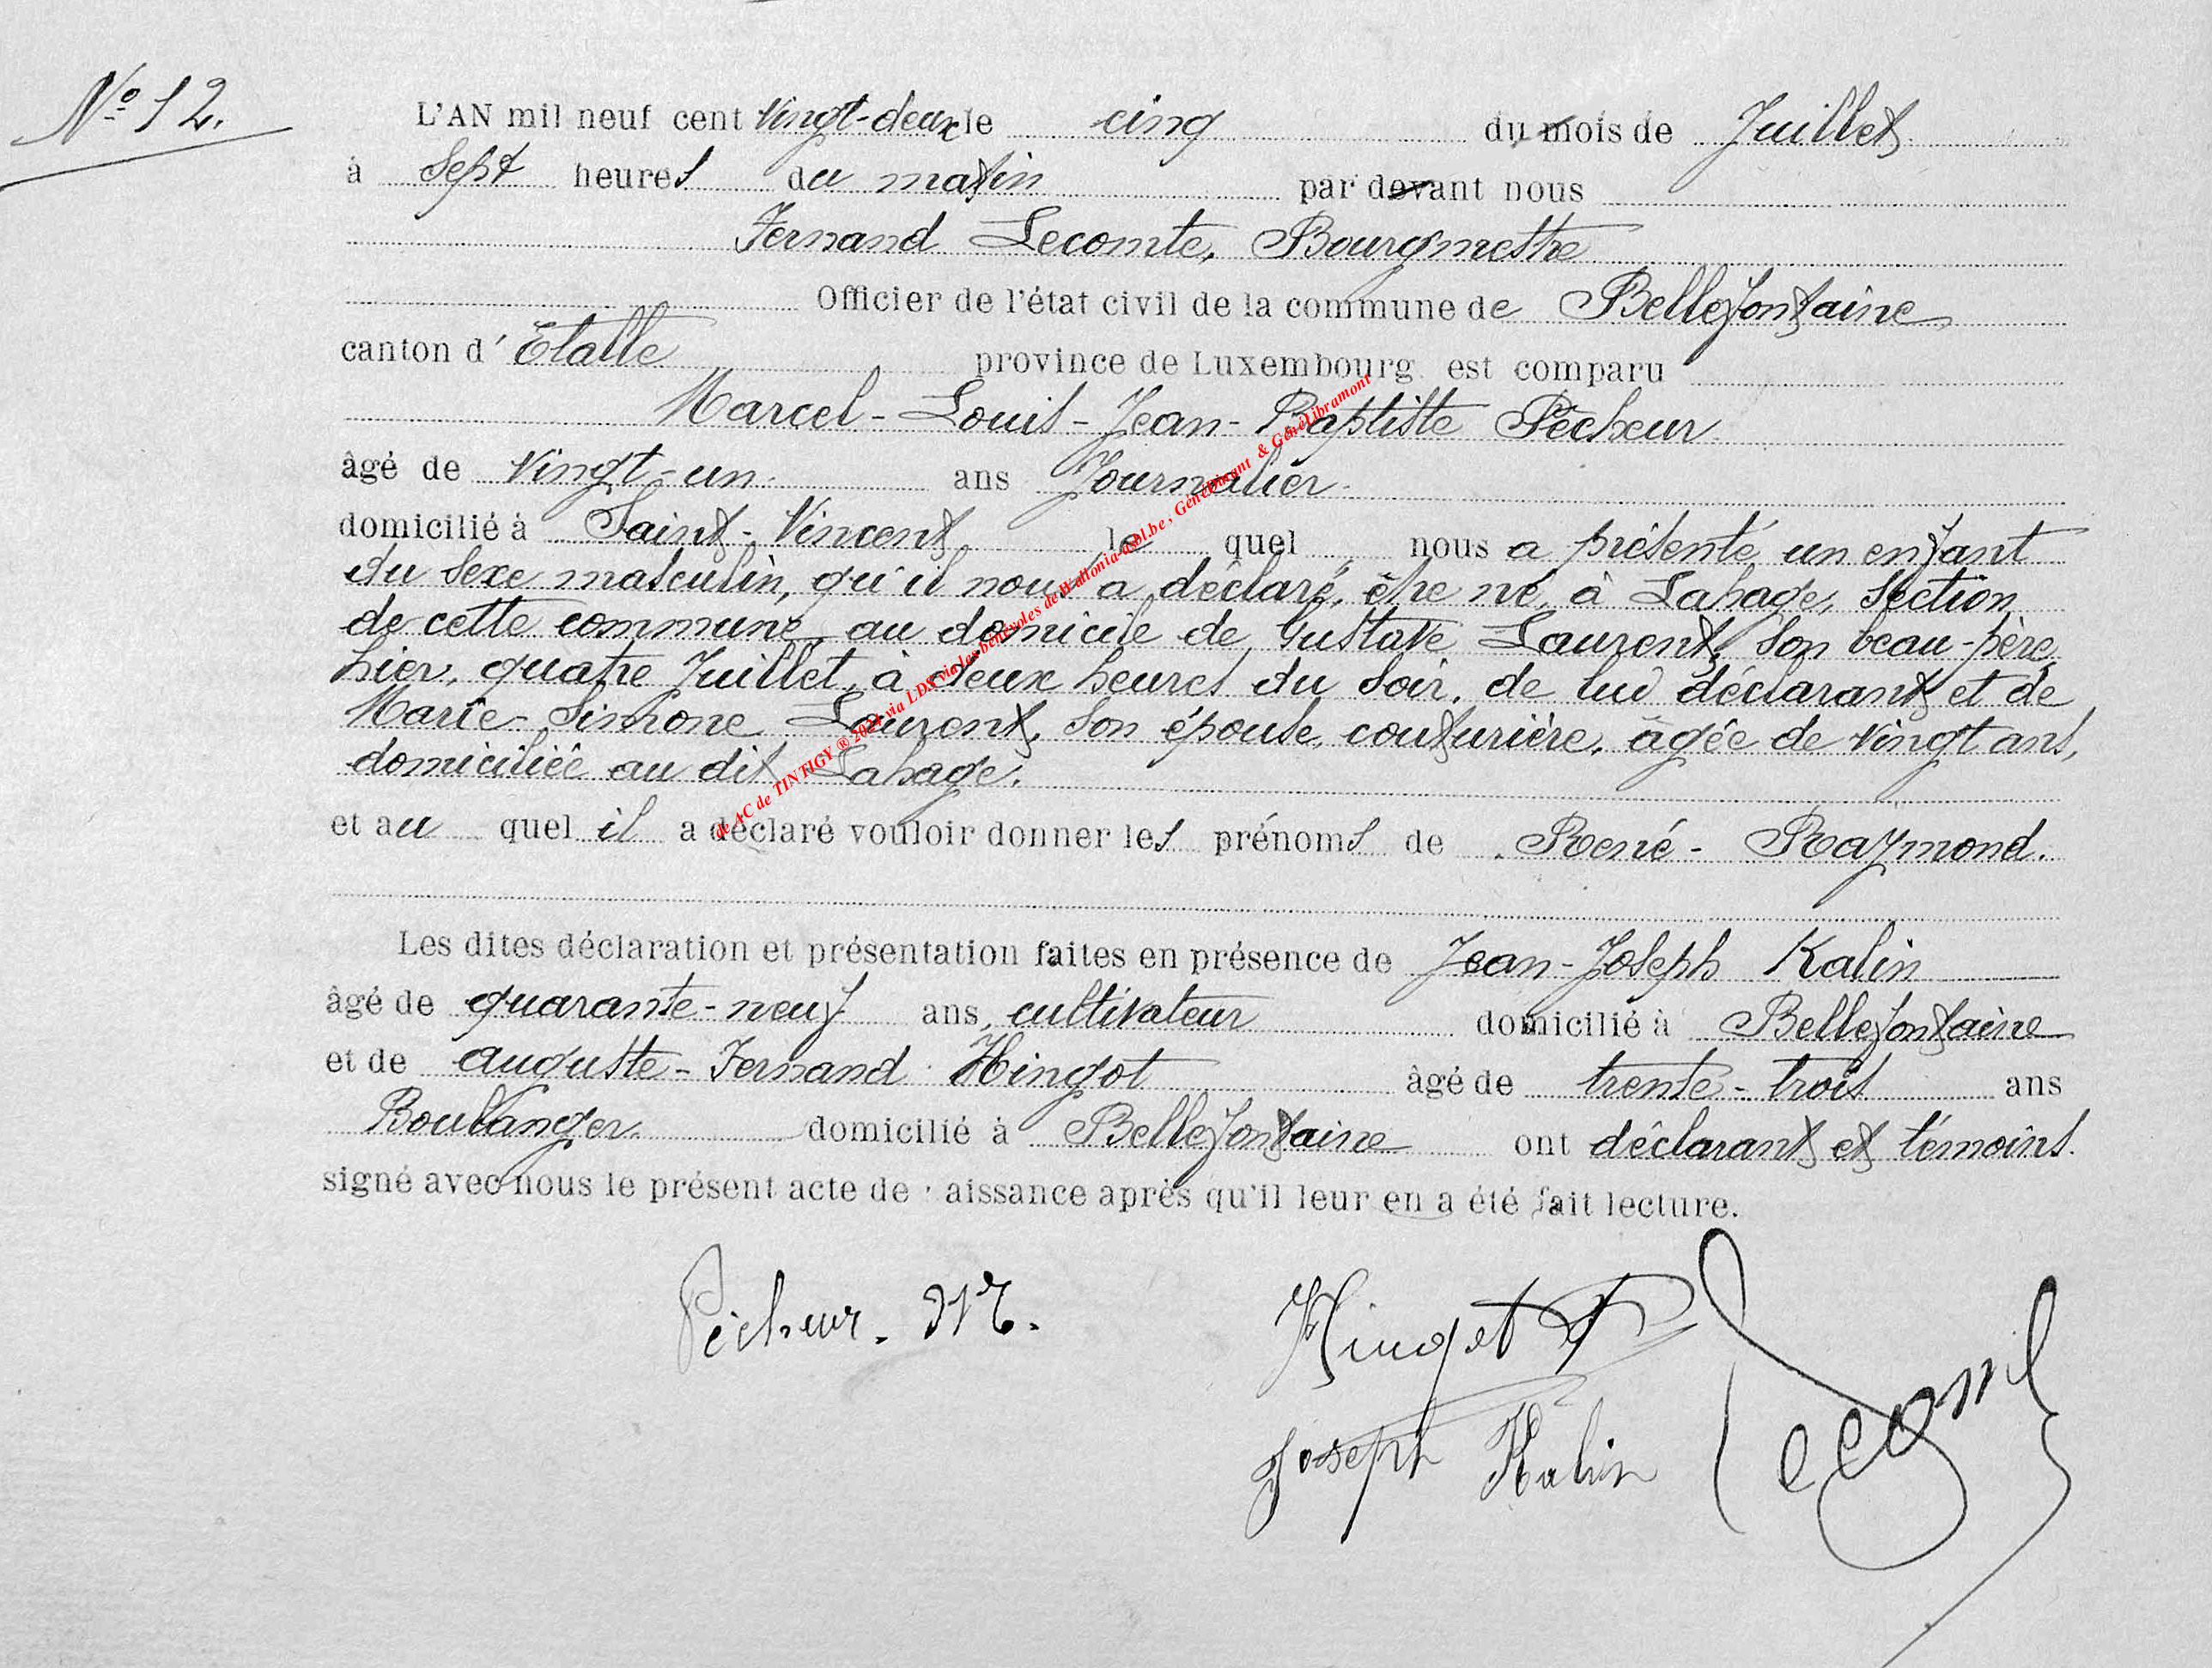 N° 12.
L'AN mil neuf cent vingt-deux le cinq du mois de Juillet
à sept heures du matin par devant nous
Fernand Lecomte, Bourgmestre
Officier de l'état civil de la commune de Bellefontaine
canton d'Etalle province de Luxembourg est comparu
Marcel-Louis-Jean-Baptiste Pêcheur
âgé de vingt-un ans Journalier
domicilié à Saint-Vincent lequel nous a présenté un enfant
du sexe masculin, qu'il nous a déclaré, être né, à Lahage, section
de cette commune, au domicile de Gustave Laurent, son beau-père,
hier, quatre Juillet, à deux heures du soir, de lui déclarant et de
Marie-Simone Laurent, son épouse, couturière, âgée de vingt ans,
domiciliée au dit Lahage.
et auquel il a déclaré vouloir donner les prénoms de René-Raymond.
Les dites déclaration et présentation faites en présence de Jean-Joseph Kalin
âgé de quarante-neuf ans, cultivateur domicilié à Bellefontaine
et de Auguste-Fernand Hingot âgé de trente-trois ans
Boulanger domicilié à Bellefontaine ont déclarant et témoins.
signé avec nous le présent acte de aissance après qu'il leur en a été fait lecture.
Pêcheur. M.
Hingot F
Joseph Kalin
Lecomte
de AC de TINTIGY ® 2024 via LDS via les bénévoles de Wallonia-asbl.be, GénéDinant & GénéLibramont